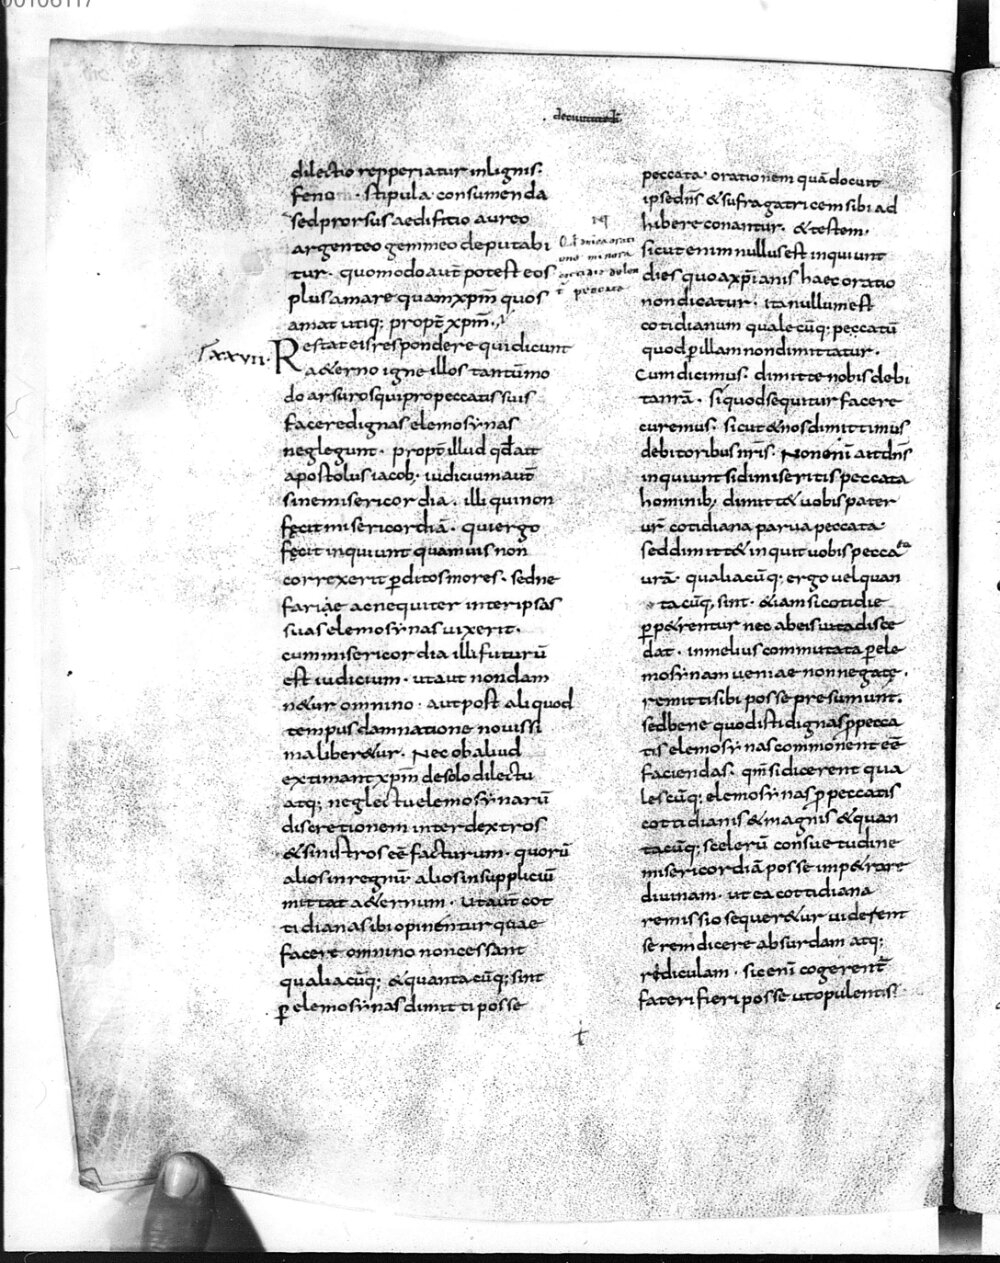 00106117
de ciuitate di
dilectio repperiatur inlignis.
feno stipula consumenda
sed prorsus aedificio aureo
argenteo gemmeo deputabi
tur. quomodo aut̄ potest eos
plus amare quam xp̄m quos
amat utiq; propt̄ xp̄m.
lxxvii. Restat eis respondere qui dicunt
a&erno igne illos tantūmo
do arsuros qui pro peccatis suis
facere dignas elemosynas
neglegunt. propt̄ illud qđ ait
apostolus iacob. iudicium aut̄
sine misericordia. illi qui non
fęcit misericordiā. qui ergo
fęcit inquiunt quamuis non
correxerit p̱ditos mores. sed ne
fariae ac nequiter inter ipsas
suas elemosynas uixerit.
cum misericordia illi futurū
est iudicium. ut aut non dam
n&ur omnino. aut post aliquod
tempus damnatione nouissi
ma liber&ur. Nec ob aliud
existimant xp̄m de solo dilectu
atq; neglectu elemosynarū
discretionem inter dextros
& sinistros eē facturum. quorū
alios in regnū alios in suppliciū
mittat a&ernum. ut aut̄ cot
tidiana sibi opinentur quae
facere omnino non cessant
qualiacūq; & quantacūq; sint
p̱ elemosynas dimitti posse
Nq
peccata. orationem quā docuit
ipse dn̄s & sufragatricem sibi ad
hibere conantur. & testem.
sicut enim nullus est inquiunt
dies quo a xp̄ianis haec oratio
non dicatur. ita nullum est
cotidianum qualecūq; peccatū
quod p̱ illam non dimittatur.
Cum dicimus. dimitte nobis debi
ta nrā. si quod sequitur facere
curemus. sicut & nos dimittimus
debitoribus nr̄is. Non enī ait dn̄s
inquiunt si dimiseritis peccata
hominib; dimitt& uobis pater
ur̄ cotidiana parua peccata
sed dimitt& inquit uobis pecca ta
urā. qualiacūq; ergo uel quan
tacūq; sint. &iam si cotidie
p̱p&rentur nec ab eis uita disce
dat. in melius commutata p̱ ele
mosynam ueniae non negatę.
remitti sibi posse presumunt.
sed bene quod isti dignas p̱ pecca
tis elemosynas commonent eē
faciendas. qm̄ si dicerent qua
lescūq; elemosynas p̱ peccatis
cottidianis & magnis & quan
tacūq; scelerū consuetudine
misericordiā posse imp&rare
diuinam. ut ea cottidiana
remissio sequer&ur uiderent
se rem dicere absurdam atq;
ridiculam. sic enī cogerent̄
fateri fieri posse ut opulentis